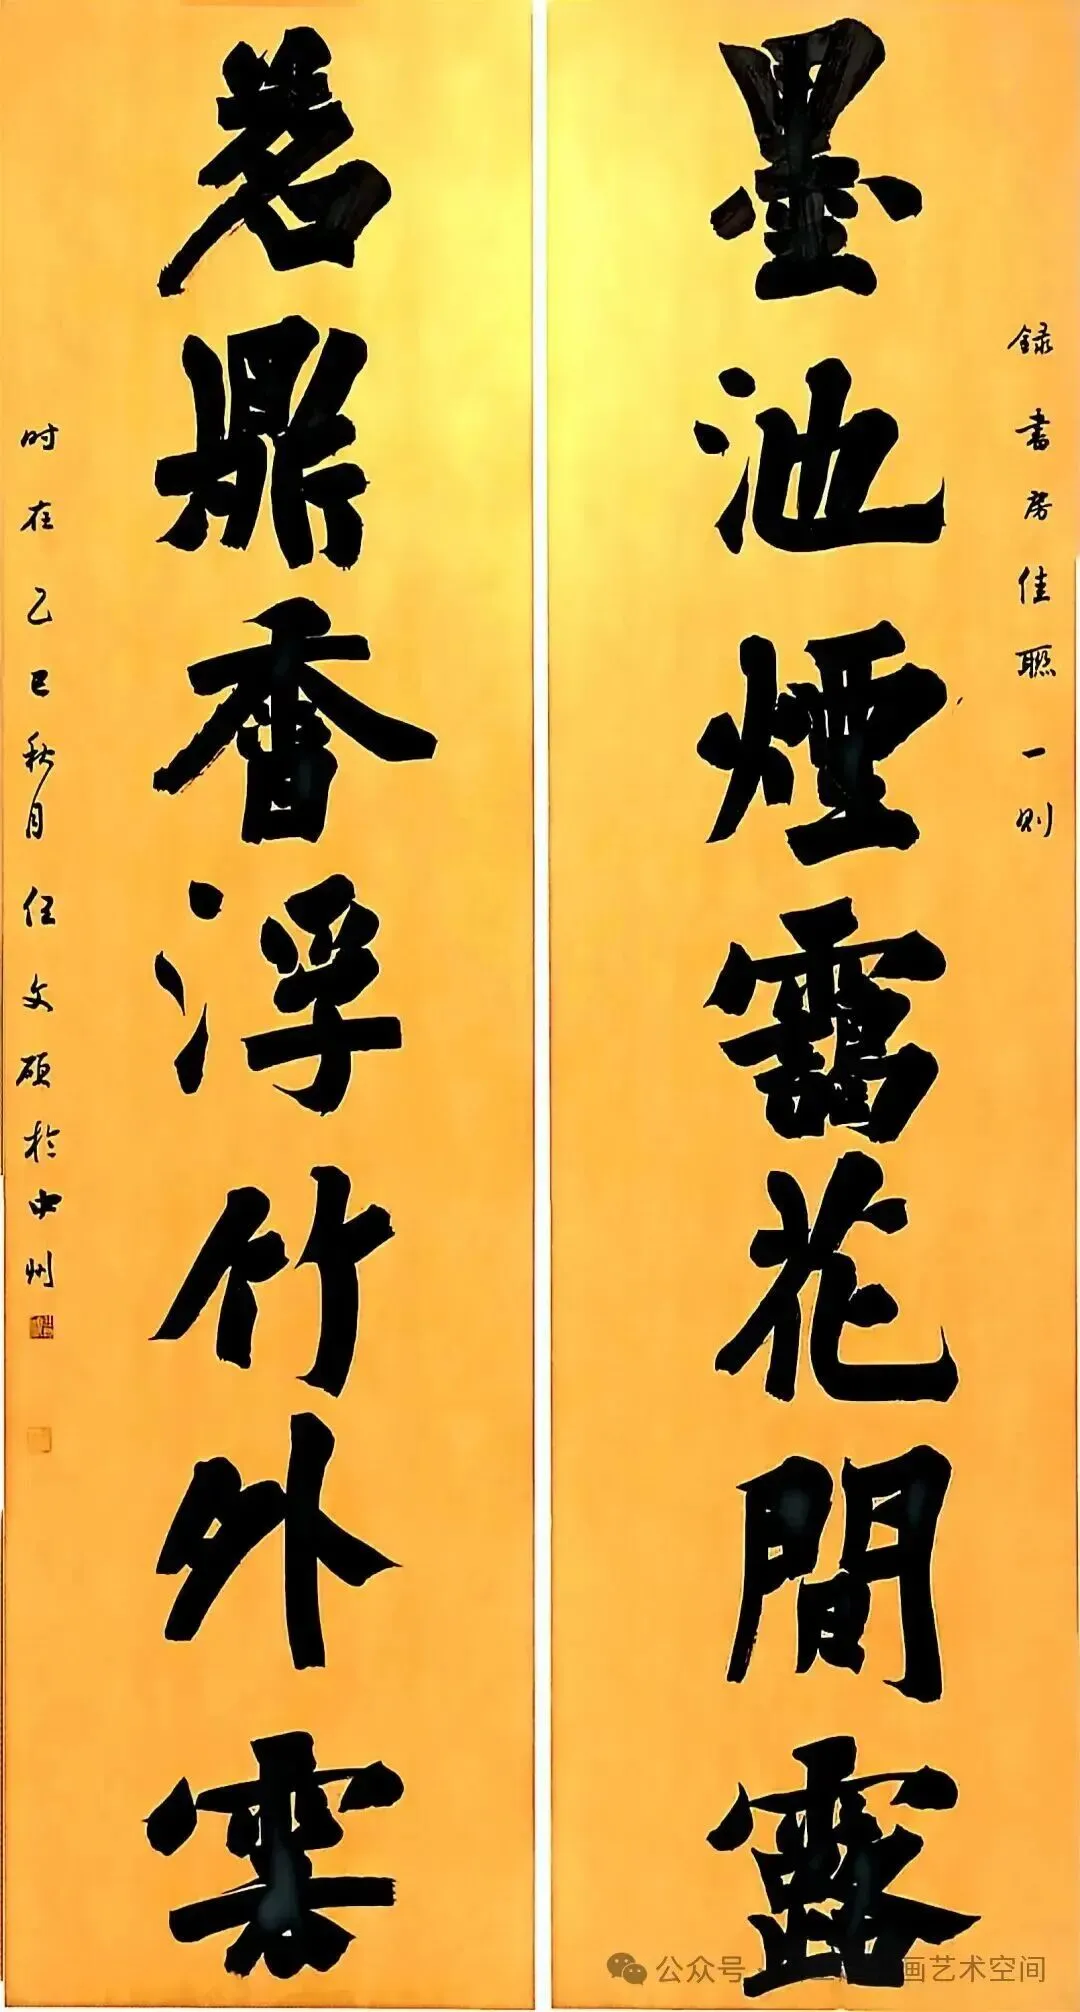 録書房佳聯一則
墨池煙靄花間露
茗鼎香浮竹外雲
时在乙巳秋月任文硕於中州
公众号 画艺术空间